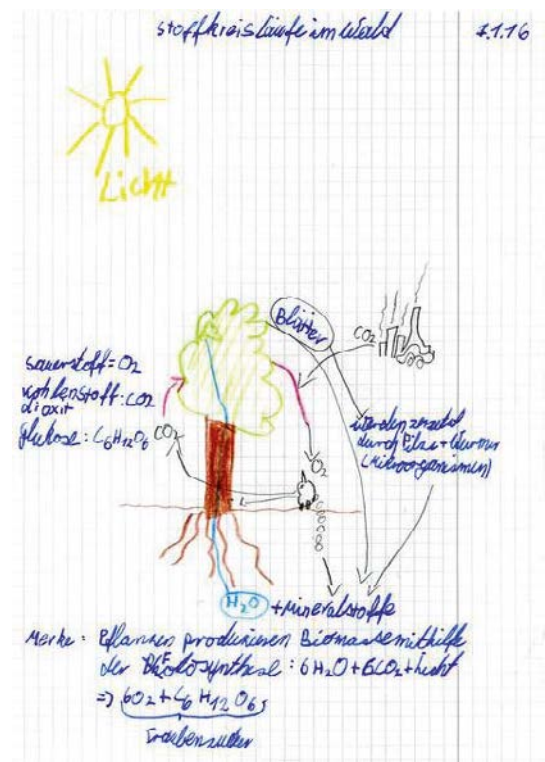 Stoffkreisläufe im Wald 7.1.16
Licht
Blätter
CO2
Sauerstoff = O2
kohlenstoff: CO2
dioxit
Glukose: C6H12O6
CO2
werden zersetzt
durch Pilze + Würmer
(Mikroorganismen)
O2
H2O + Mineralstoffe
Merke: Pflanzen produzieren Biomasse mithilfe
der Photosynthese: 6H2O + 6CO2 + Licht
=> 6O2 + C6H12O6
Traubenzucker